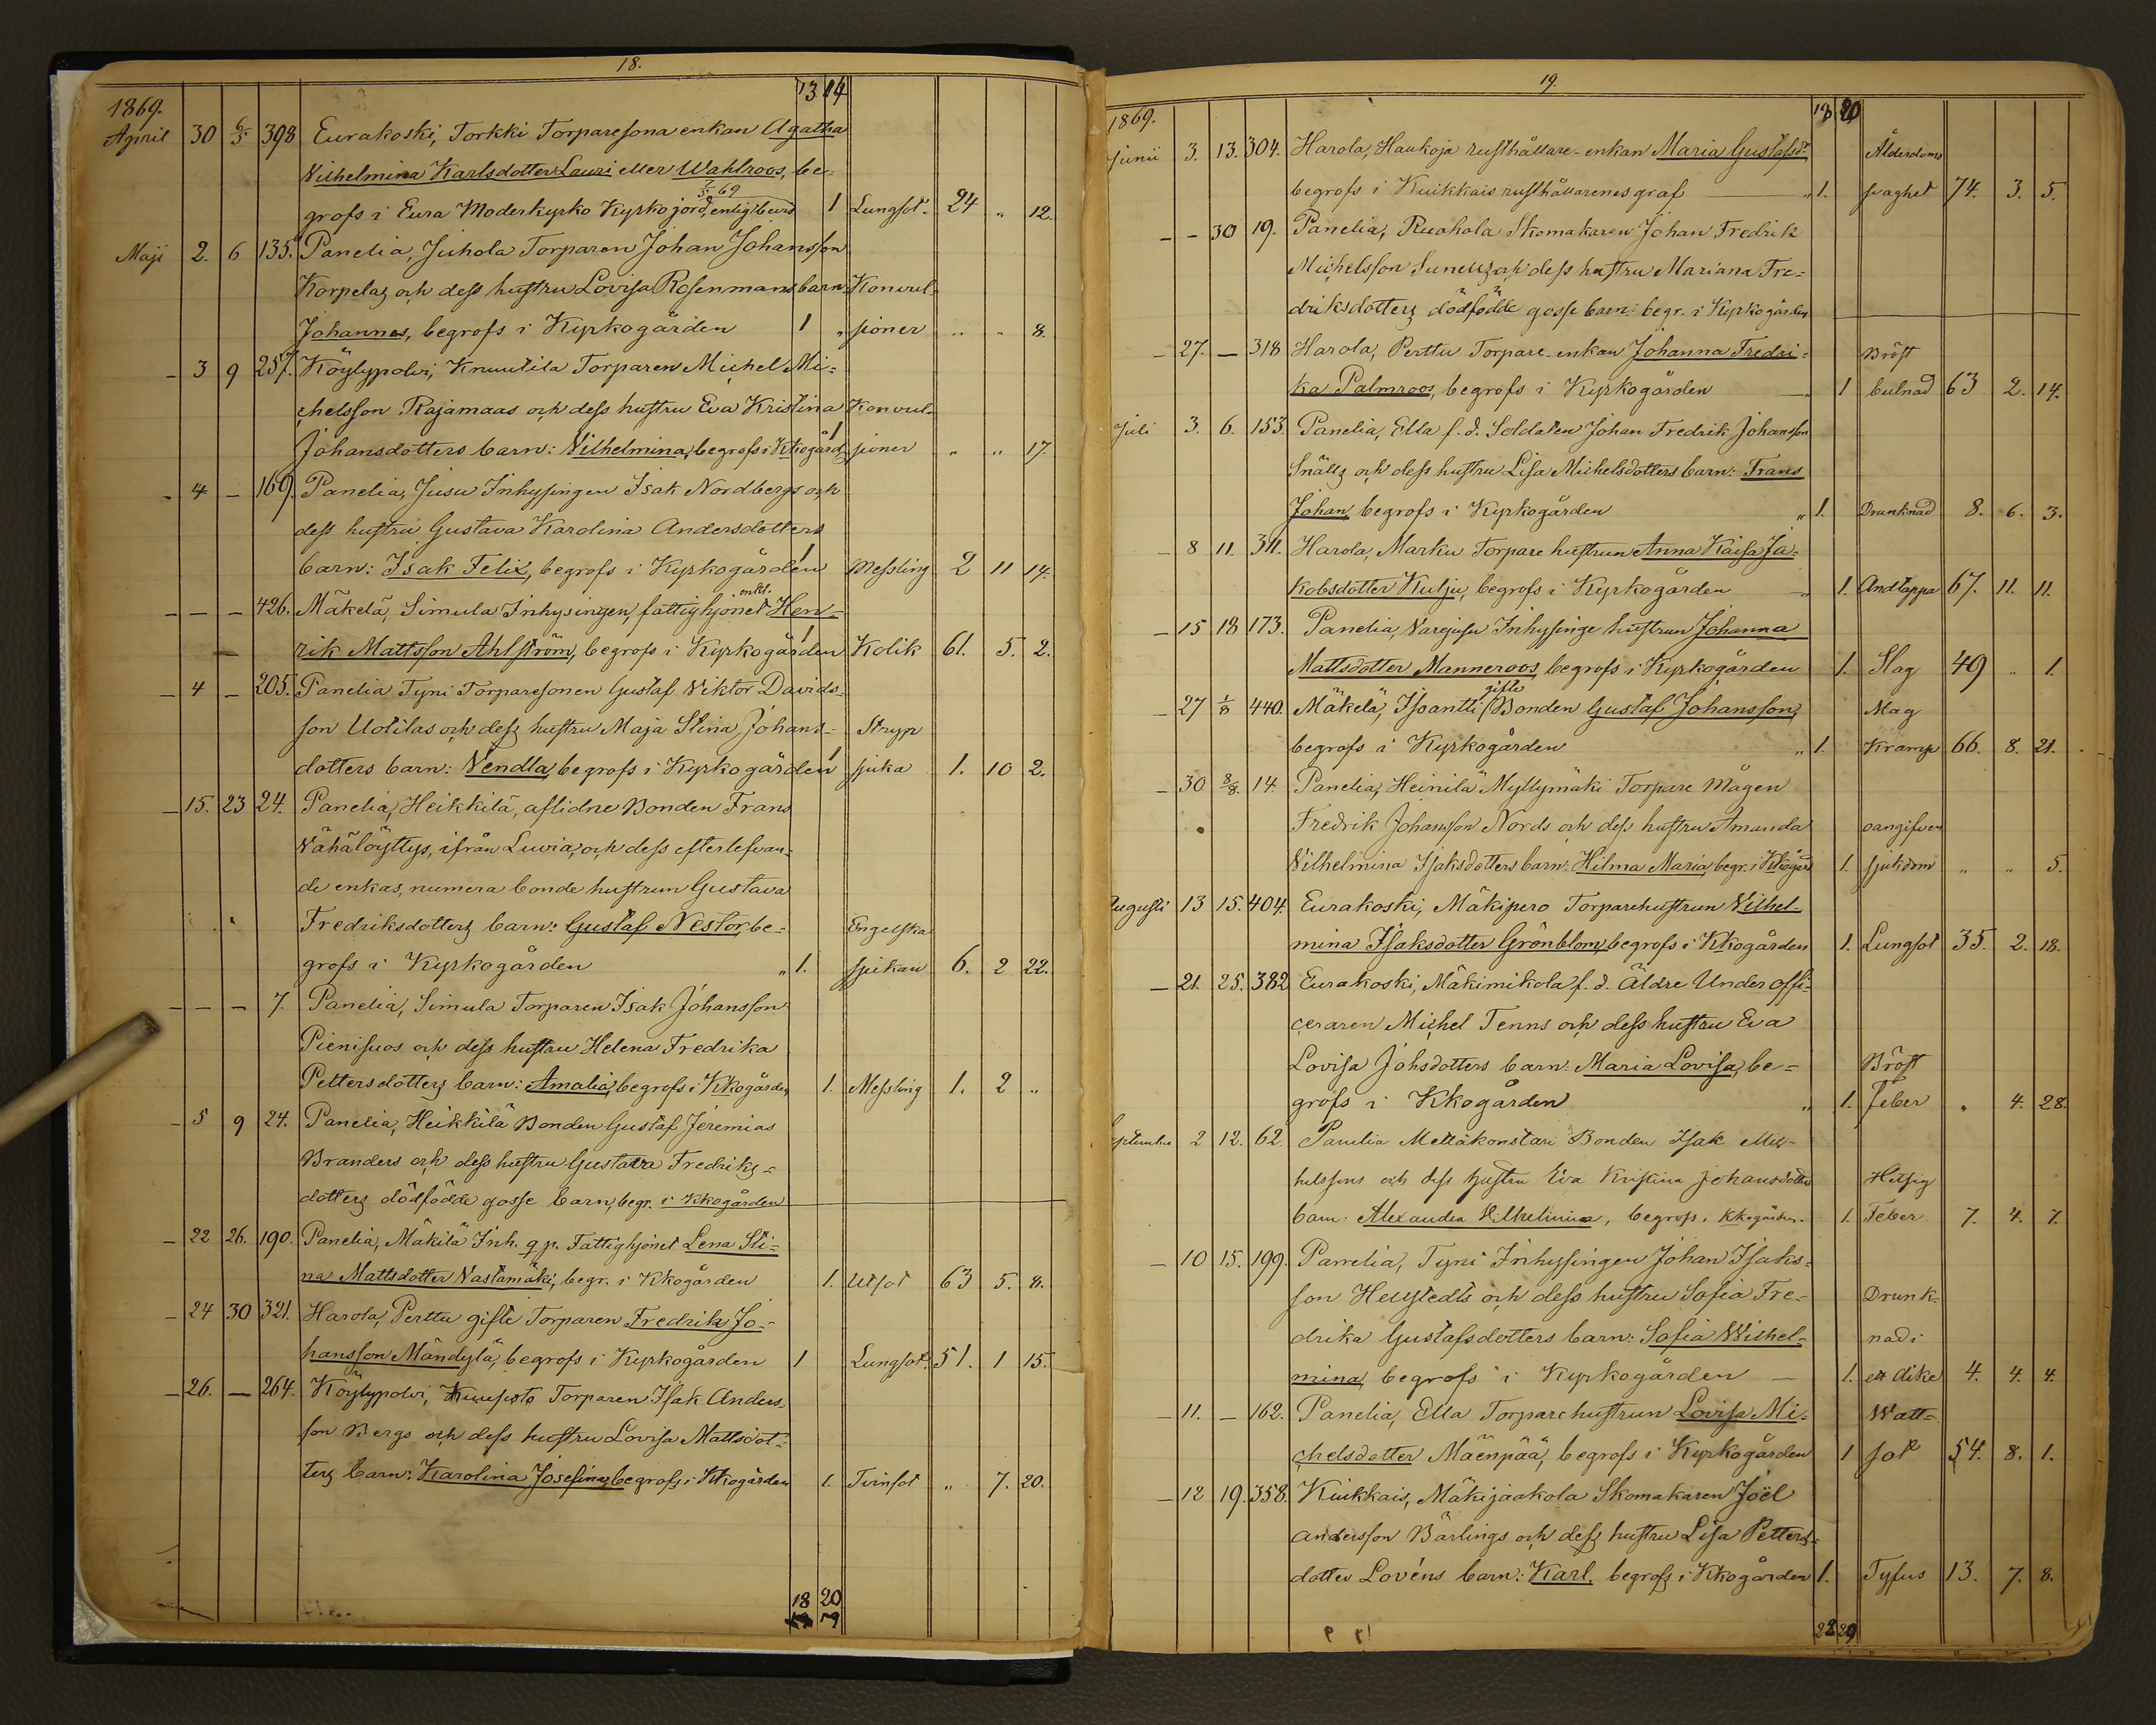 18.
13 14
1869.
April 30 6/5 398 Eurakoski, Torkki Torparesona enkan Agatha
Wilhelmina Karlsdotter Lauri eller Wahlroos, be-
7/5 69
grofs i Eura Moderkyrko Kyrkojord, enligt bevis 1 Lungsot. 24 " 12.
Maji 2. 6 135. Panelia, Juhola Torparen Johan Johansson
Korpelas och dess hustru Lovisa Rosenmans barn Konvul-
Johannes, begrofs i Kyrkogården 1 " sioner " " 8.
- 3 9 257. Köylypolvi, Knuutila Torparen Michel Mi-
chelsson Rajamaas och dess hustru Eva Kristina Konvul-
Johansdotters barn: Vilhelmina, begrofs i Kkogård 1 sioner " " 17.
- 4 - 169. Panelia, Jusu Inhysingen Isak Nordbergs och
dess hustru Gustava Karolina Andersdotters
barn: Isak Felix, begrofs i Kyrkogården 1 Messling 2 11 14.
- - - 426. Mäkelä, Simula Inhysingen, fattighjonet enkl. Hen-
rik Mattsson Ahlström, begrofs i Kyrkogården 1 Kolik 61. 5. 2.
- 4 - 205. Panelia Tyni Torparesonen Gustaf Viktor Davids-
son Uotilas och dess hustru Maja Stina Johans- Stryp
dotters barn: Vendla, begrofs i Kyrkogården 1 sjuka 1. 10 2.
- 15. 23 24. Panelia, Heikkilä, aflidne Bonden Frans
Vähälöyttys, ifrån Luvia, och dess efterlefvan-
de enkas, numera bonde hustrun Gustava
Fredriksdotters barn: Gustaf Nestor, be- Engelska
grofs i Kyrkogården " 1. sjukan 6. 2 22.
- - - 7. Panelia, Simula Torparen Isak Johansson
Pienisuos och dess hustru Helena Fredrika
Pettersdotters barn: Amalia, begrofs i Kkogården 1. Messling 1. 2 "
- 5 9 24. Panelia, Heikkilä Bonden Gustaf Jeremias
Branders och dess hustru Gustava Fredriks-
dotters dödfödde gosse barn, begr. i Kkogården
- 22 26. 190. Panelia, Mäkilä Inh. q p. Fattighjonet Lena Sti-
na Mattsdotter Vastamäki, begr. i Kkogården 1. Utsot 63 5. 8.
- 24 30 321. Harola, Perttu gifte Torparen Fredrik Jo-
hansson Mändylä, begrofs i Kyrkogården 1 Lungsot. 51. 1 15.
- 26. - 264. Köylypolvi, Torparen Isak Anders-
son Bergs och dess hustru Lovisa Mattsdot-
ters barn: Karolina Josefina, begrofs i Kkogården 1. Tvinsot " 7. 20.
18 20
19.
18 20
1869.
Junii 3. 13. 304. Harola, Haukoja rusthållare-enkan Maria Gustafsdr Ålderdoms
begrofs i Kuikkais rusthållarenes graf " 1. svaghet 74. 3. 5.
- - 30 19. Panelia, Ruohola Skomakaren Johan Fredrik
Michelsson Sunells och dess hustru Mariana Fre-
driksdotters dödfödde gosse barn: begr. i Kyrkogården
- 27. - 318 Harola, Perttu Torpare-enkan Johanna Fredri- Bröst
ka Palmroos, begrofs i Kyrkogården " 1 bulnad 63 2. 14.
Juli 3. 6. 153. Panelia, Ella f.d. Soldaten Johan Fredrik Johansson
Snälls och dess hustru Lisa Michelsdotters barn: Frans
Johan, begrofs i Kyrkogården " 1. Drunknad 8. 6. 3.
- 8 11. 311. Harola, Marku Torpare hustrun Anna Kaisa Ja-
kobsdotter Kulju, begrofs i Kyrkogården " 1. Andtäppa 67. 11. 11.
- 15 18 173. Panelia, Varejusu Inhysinge hustrun Johanna
Mattsdotter Manneroos, begrofs i Kyrkogården 1. Slag 49 " 1.
gifte
- 27 1/8 440. Mäkelä, Isoantti Bonden Gustaf Johansson, Mag
begrofs i Kyrkogården " 1. Kramp 66. 8. 21.
- 30 8/8. 14. Panelia, Heinilä Myllymäki Torpare Mågen
Fredrik Johansson Nords och dess hustru Amanda oangifven
Vilhelmina Isaksdotters barn: Hilma Maria, begr. i Kkogård 1. sjukdom " " 5.
Augusti 13 15. 404. Eurakoski, Mäkipero Torparehustrun Vilhel-
mina Isaksdotter Grönblom, begrofs i Kkogården 1. Lungsot 35. 2. 18.
- 21. 25. 382 Eurakoski, Mäkimikola f.d. Äldre Under offi-
ceraren Michel Tenns och dess hustru Eva
Lovisa Johsdotters barn: Maria Lovisa, be- Bröst
grofs i Kkogården " 1. Feber " 4. 28.
September 2 12. 62. Panelia Mellakonstari Bonden Isak Mic-
helssons och dess hustru Eva Kristina Johansdotters Hetsig
barn: Alexandra Wilhelmina, begrofs i Kkogården. 1. Feber. 7. 4. 7.
- 10 15. 199. Panelia, Tyni Inhysingen Johan Isaks-
son Hellstedts och dess hustru Sofia Fre- Drunk-
drika Gustafsdotters barn: Sofia Wilhel- nad i
mina, begrofs i Kyrkogården - 1. ett dike 4. 4. 4.
- 11. - 162. Panelia, Ella Torparehustrun Lovisa Mi- Watt-
chelsdotter Mäenpää, begrofs i Kyrkogården 1 sot 54. 8. 1.
- 12 19. 358. Kiukkais, Mäkijaakola Skomakaren Joël
Andersson Bärlings och dess hustru Lisa Petters-
dotter Lovéns barn: Karl, begrofs i Kkogården 1. Tyfus 13. 7. 8.
22 29